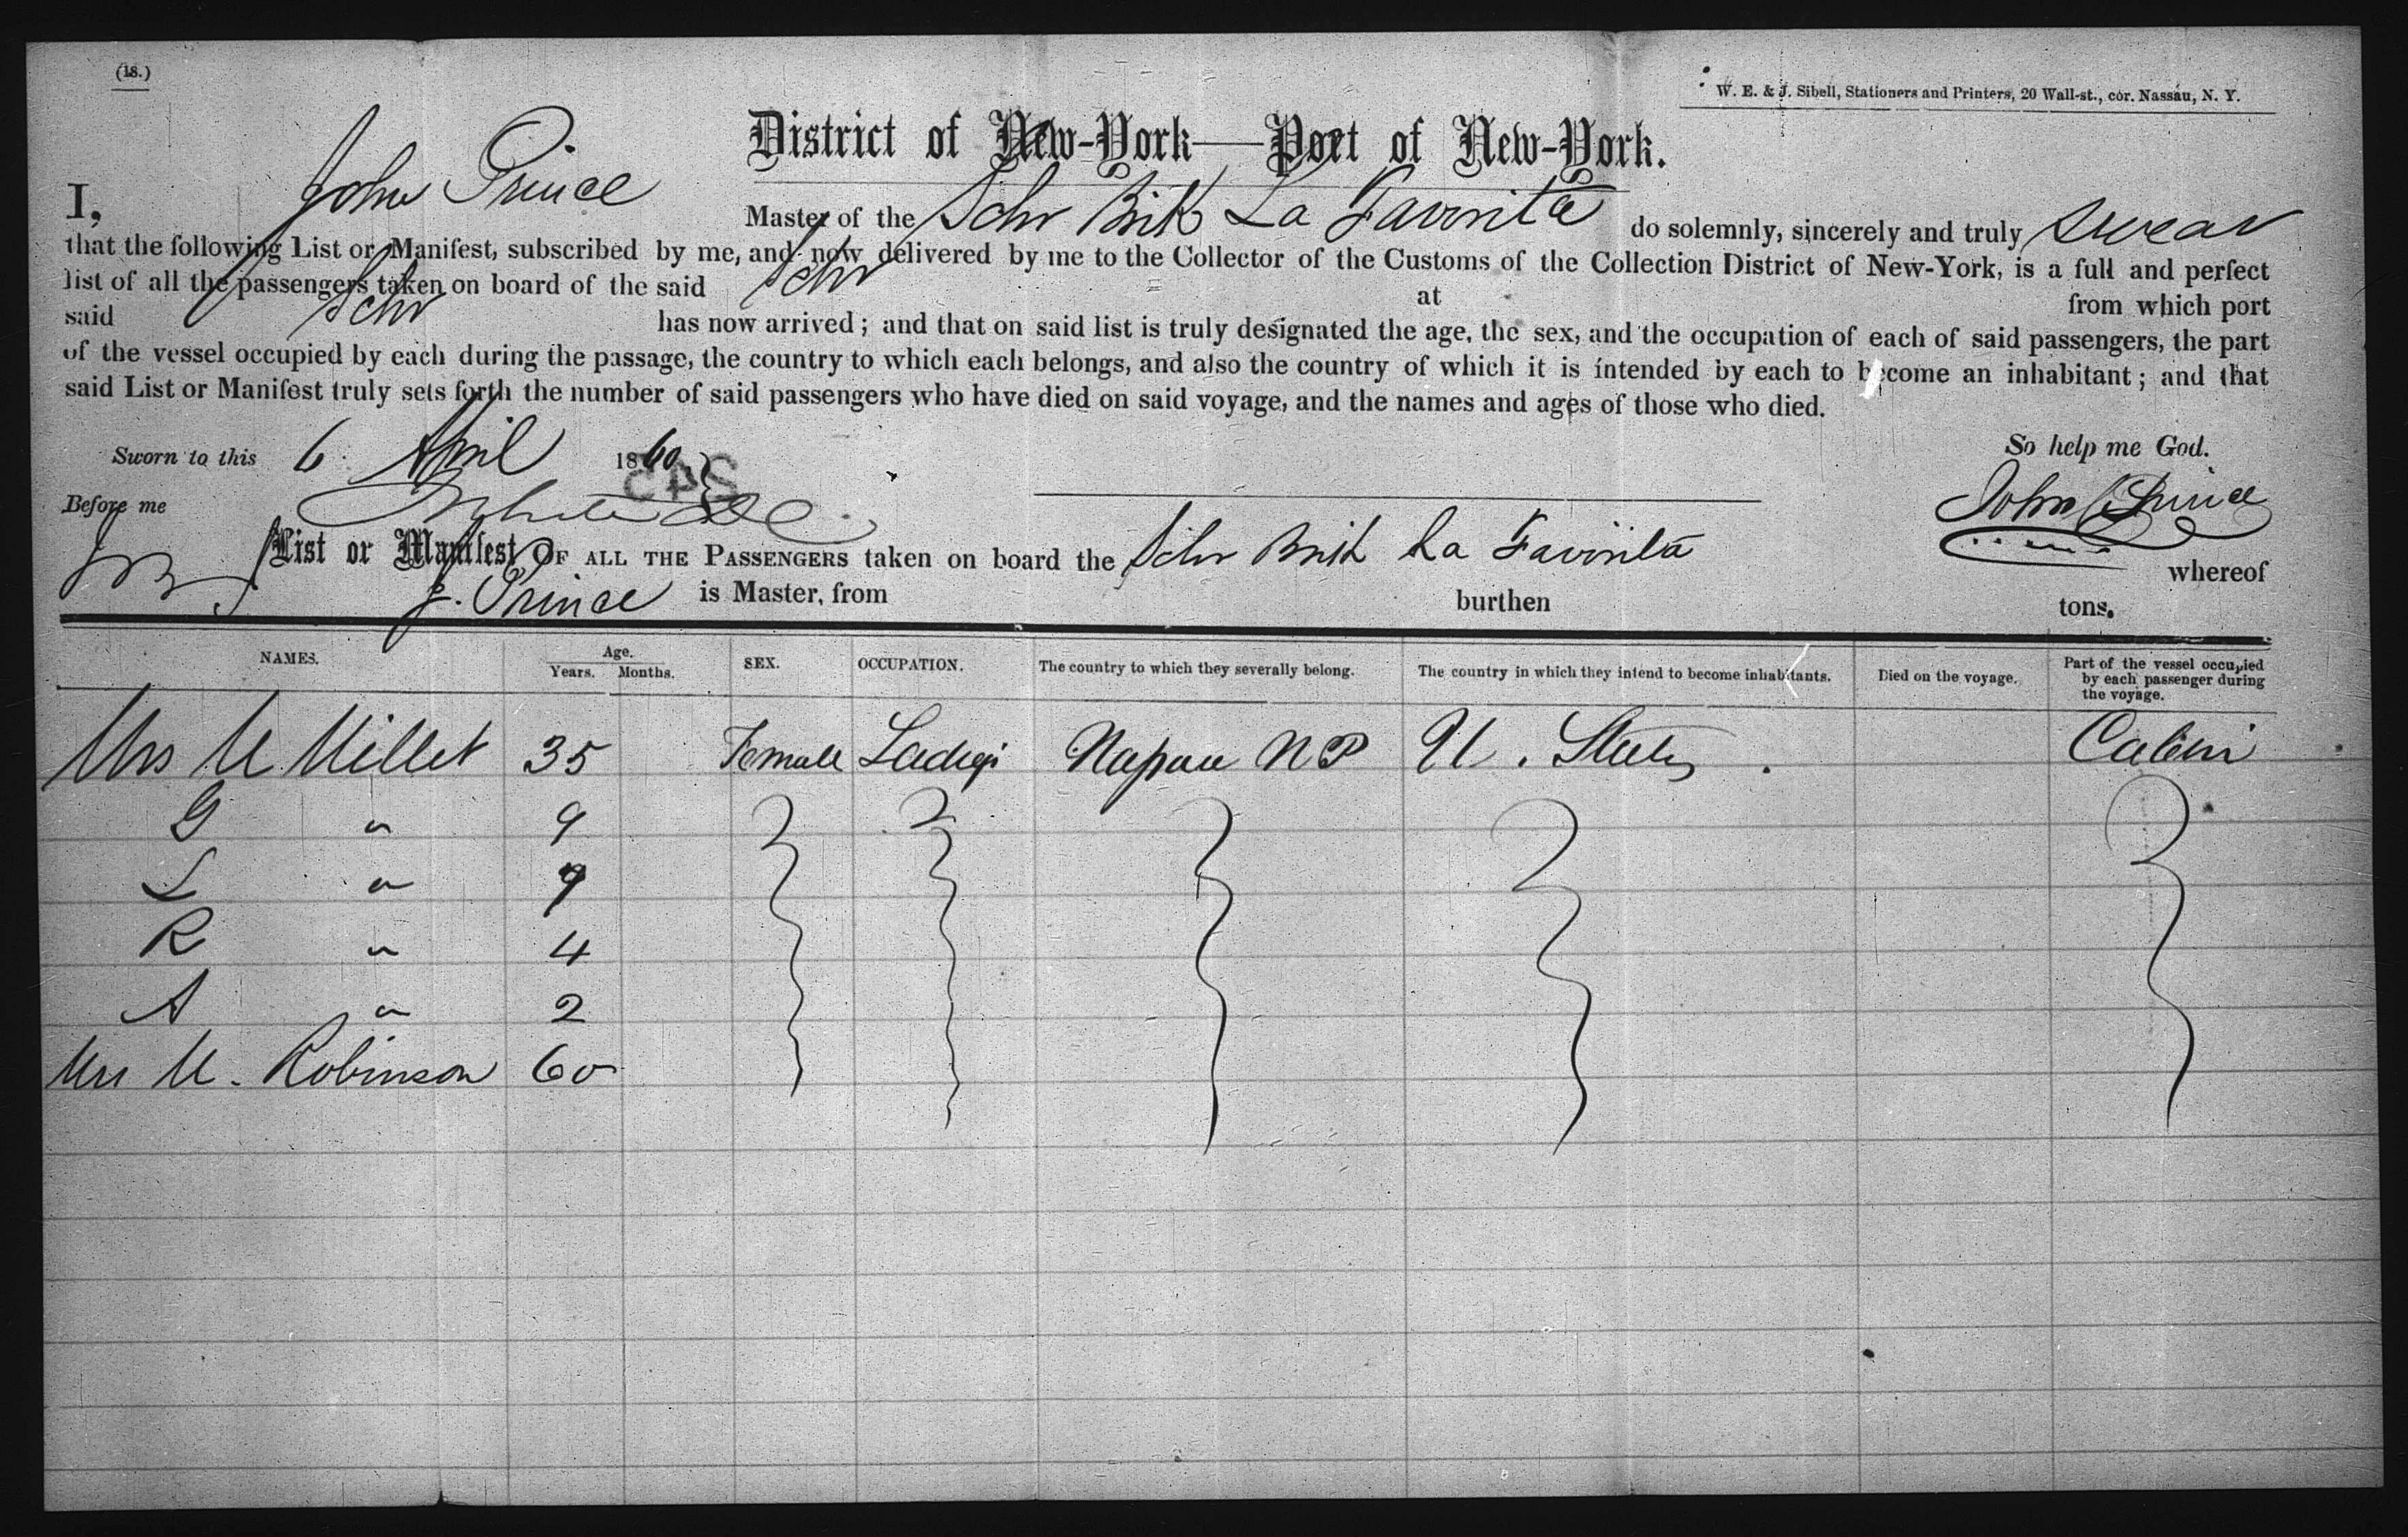 (18.)
W. E. & J. Sibell, Stationers and Printers, 20 Wall-st., cor. Nassau, N. Y.
District of New-York—Port of New-York.
I, John Prince Master of the Schr Brit La Favorita do solemnly, sincerely and truly swear
that the following List or Manifest, subscribed by me, and now delivered by me to the Collector of the Customs of the Collection District of New-York, is a full and perfect
list of all the passengers taken on board of the said Schr at from which port
said Schr has now arrived; and that on said list is truly designated the age, the sex, and the occupation of each of said passengers, the part
of the vessel occupied by each during the passage, the country to which each belongs, and also the country of which it is intended by each to become an inhabitant; and that
said List or Manifest truly sets forth the number of said passengers who have died on said voyage, and the names and ages of those who died.
Sworn to this 6 April 1860 So help me God.
Before me John Prince
List or Manifest OF ALL THE PASSENGERS taken on board the Schr Brit La Favorita whereof
J. Prince is Master, from burthen tons.
NAMES. Age. Years. Months. SEX. OCCUPATION. The country to which they severally belong. The country in which they intend to become inhabitants. Died on the voyage. Part of the vessel occupied by each passenger during the voyage.
Mrs M Millet 35 Female Nassau N P U. States Cabin
G " 9
L " 7
R " 4
A " 2
Mrs M. Robinson 60